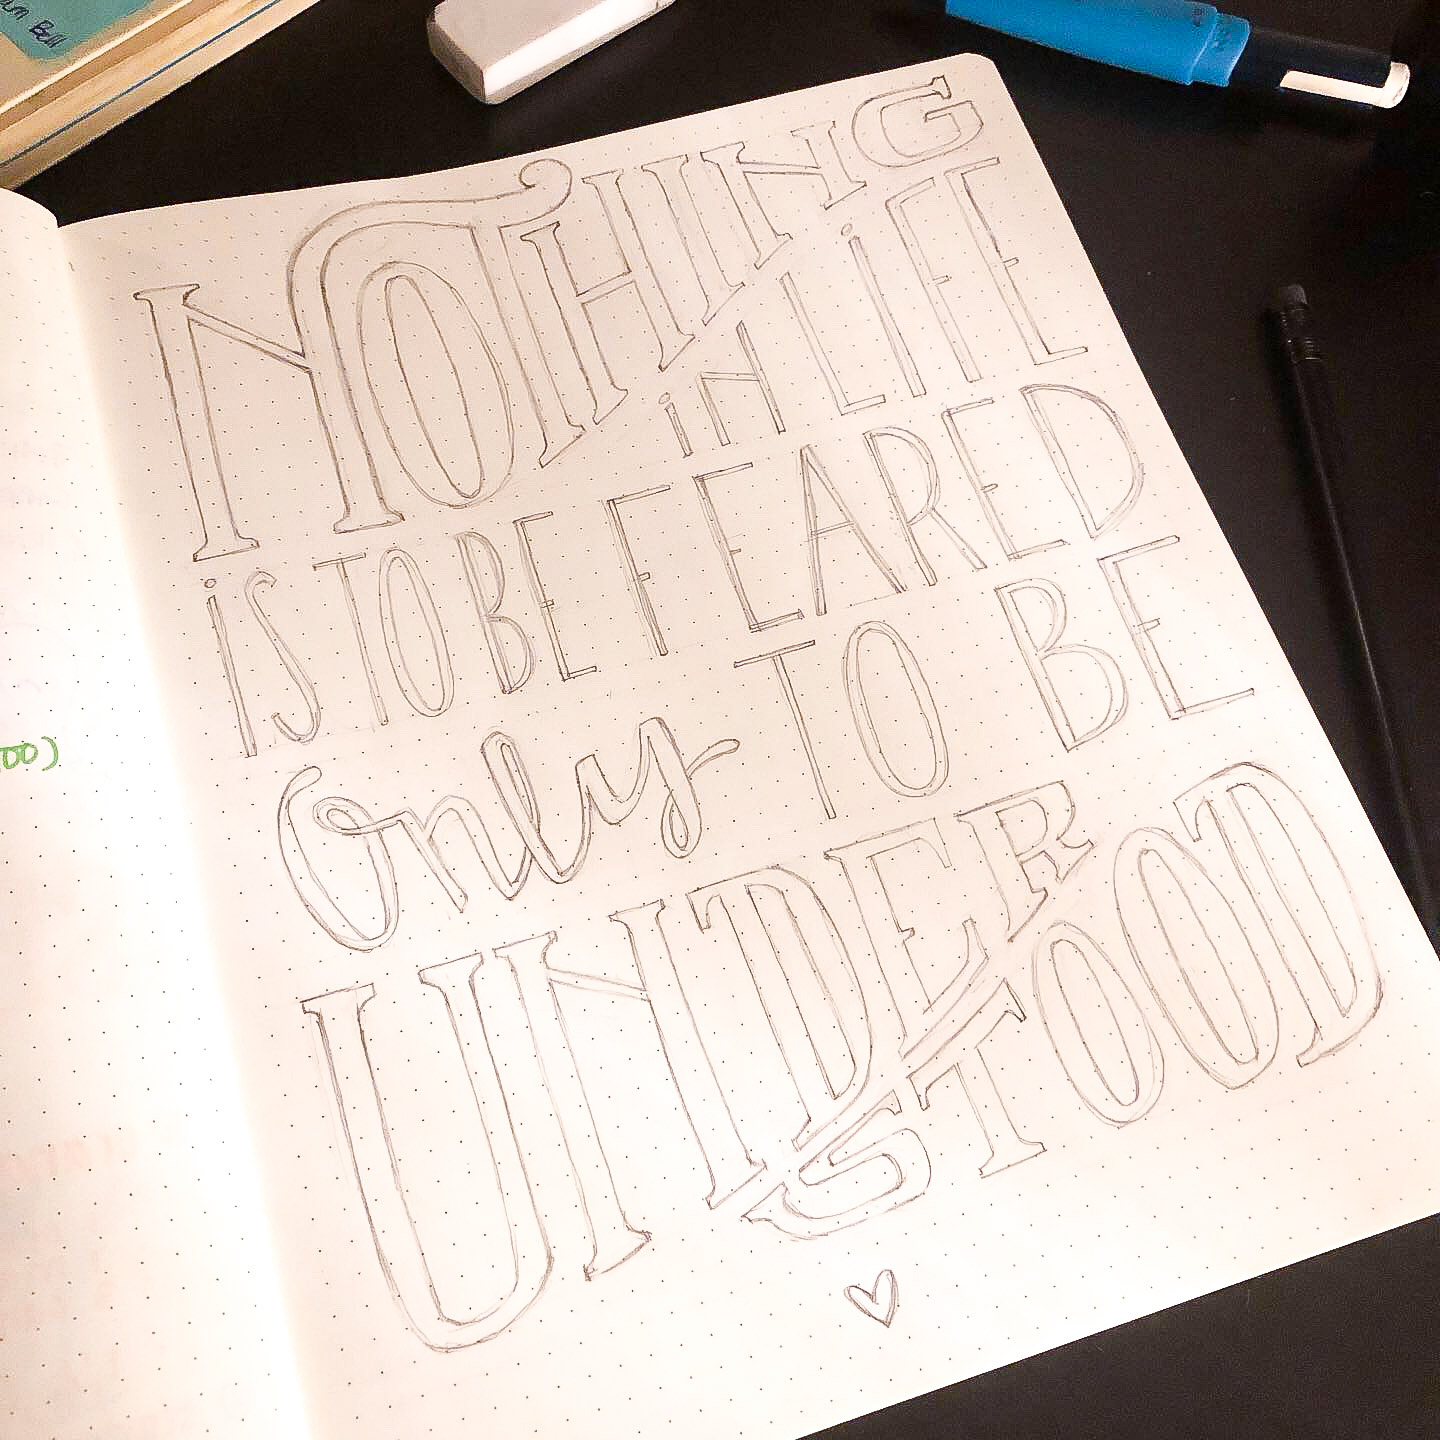 NOTHING
iN LiFE
iS TO BE FEARED
only TO BE
UNDER
STOOD
Bell